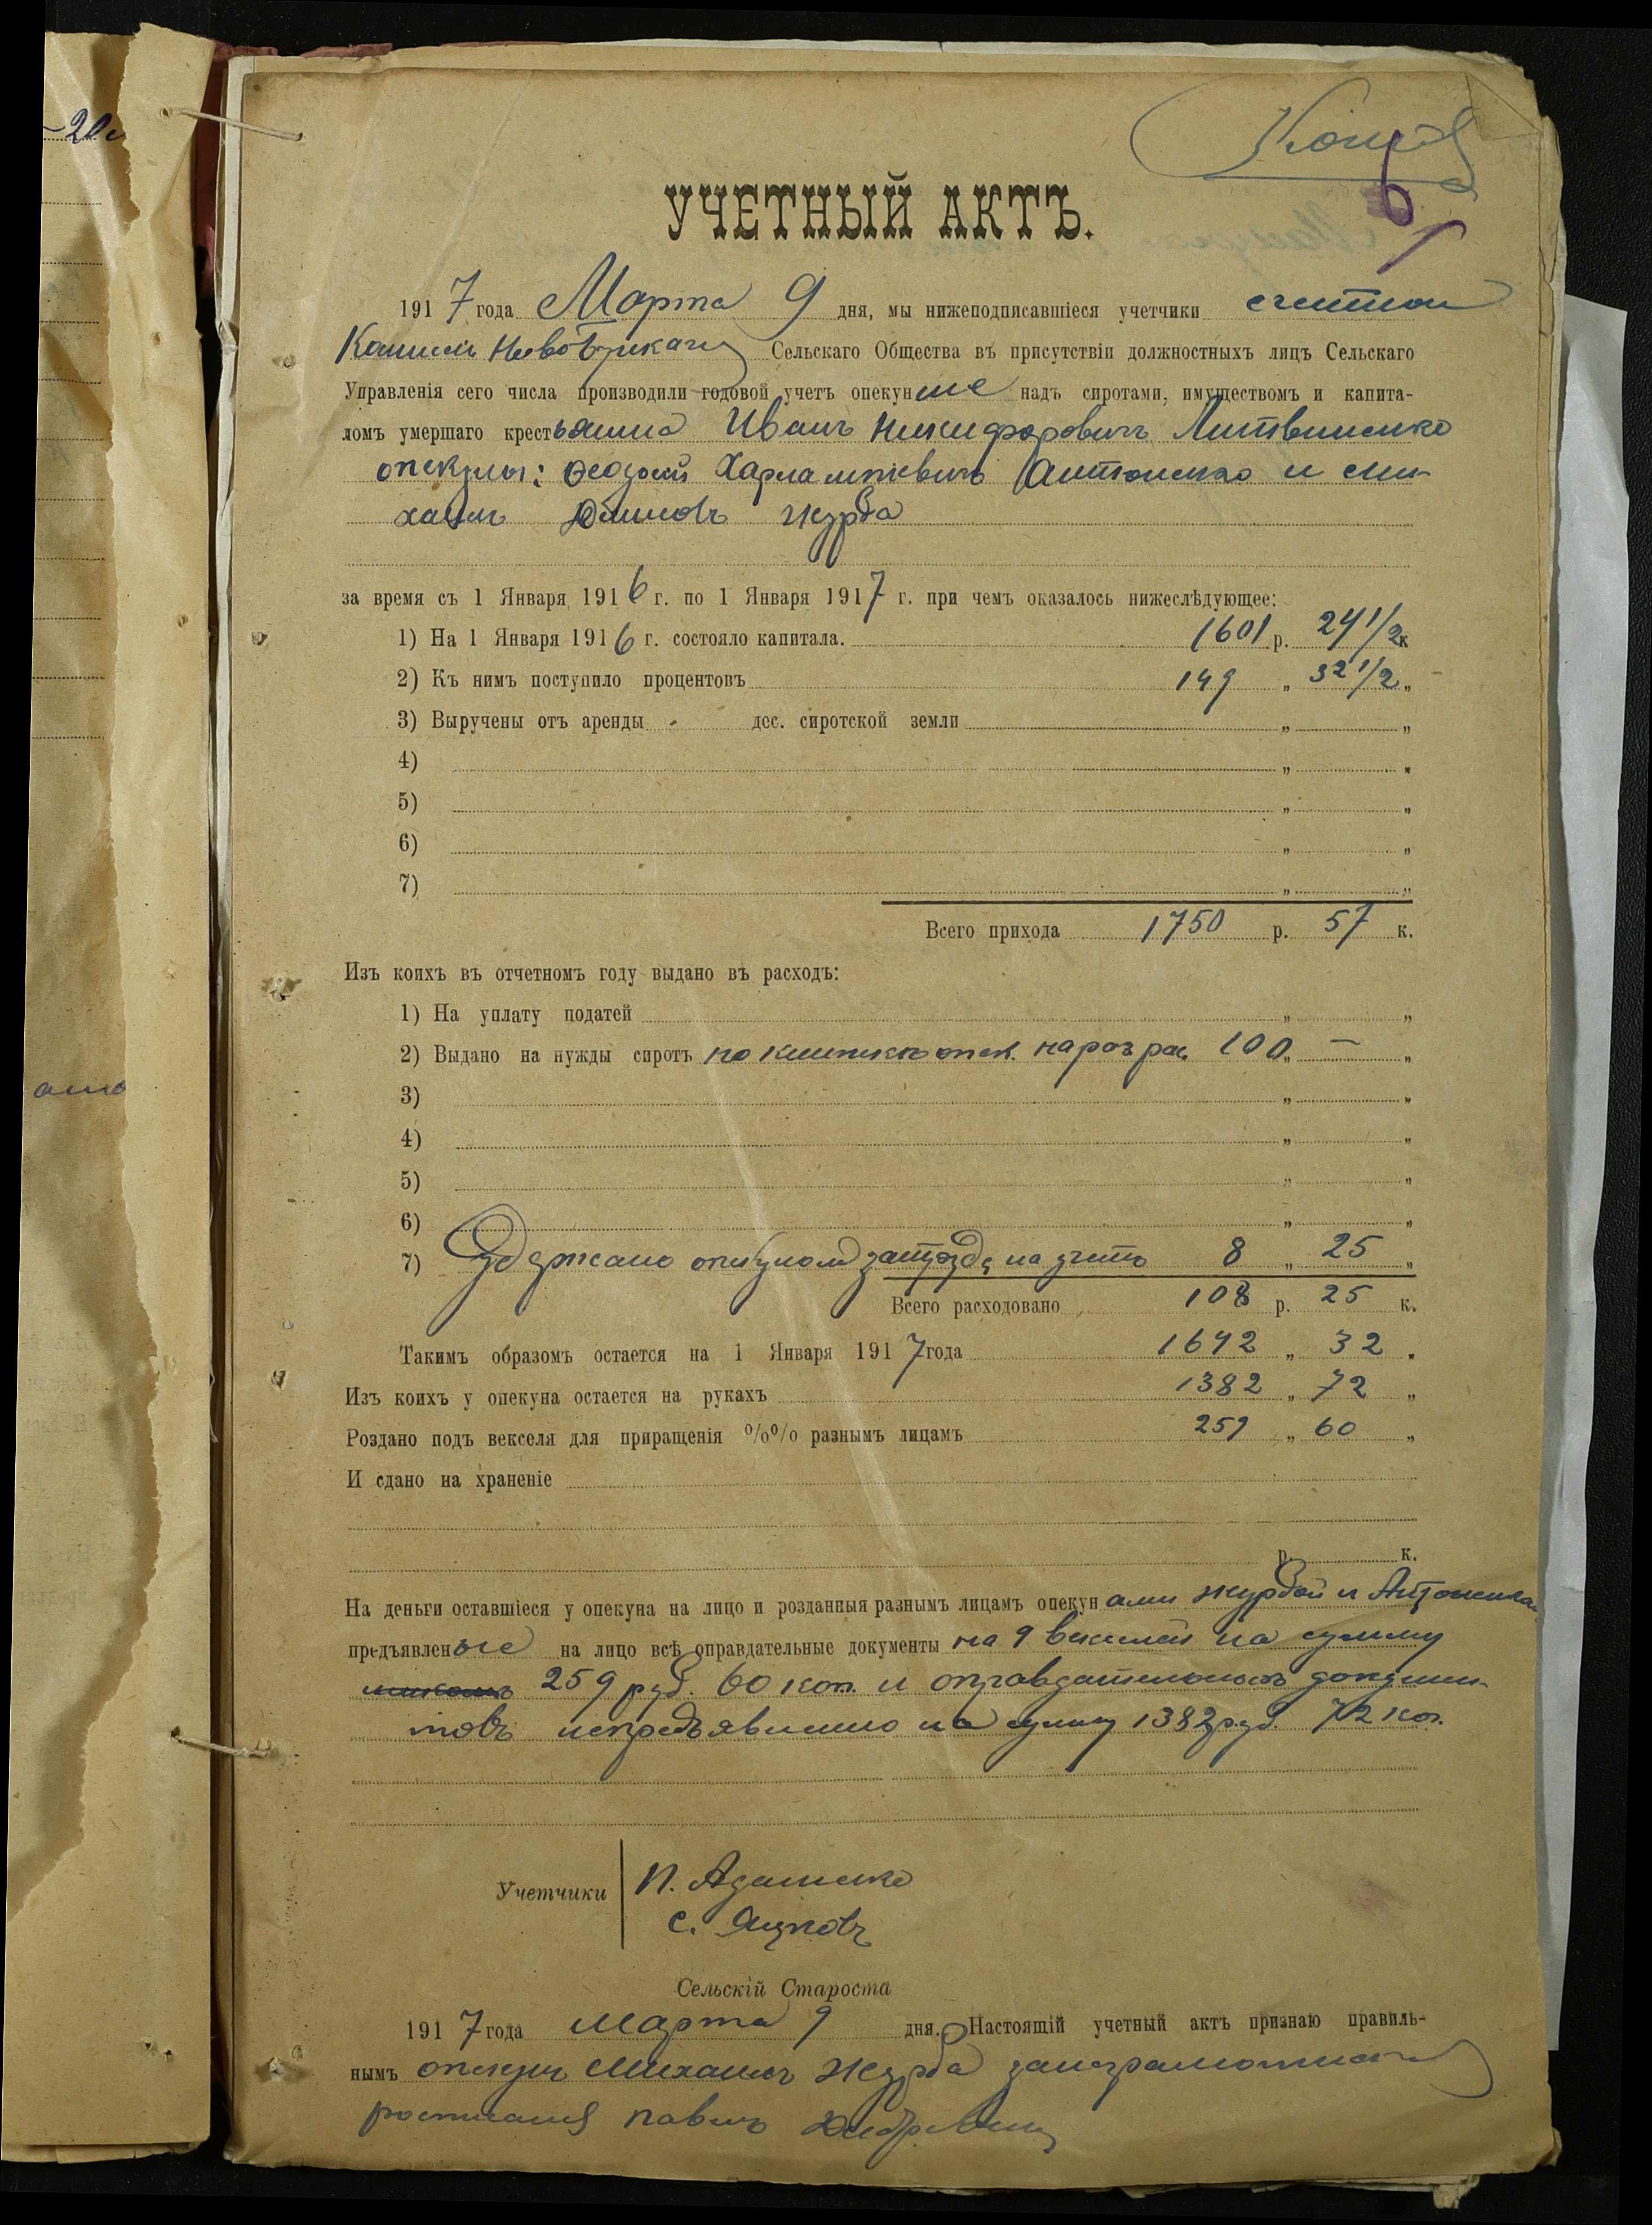 20
Копія
6
УЧЕТНЫЙ АКТЪ.
1917 года Марта 9 дня, мы нижеподписавшіеся учетчики счетной
Сельскаго Общества въ присутствіи должностныхъ лицъ Сельскаго
Управленія сего числа производили годовой учетъ опекун надъ сиротами, имуществомъ и капита-
ломъ умершаго крестьянина Иванъ Никифоровичъ Литвиненко
опекуны: Феодосій Харлампіевичъ Антоненко и Ми-
хаилъ Журба
за время съ 1 Января 1916 г. по 1 Января 1917 г. при чемъ оказалось нижеслѣдующее:
1) На 1 Января 1916 г. состояло капитала. 1601 р. 24 1/2 к
2) Къ нимъ поступило процентовъ 149 „ 32 1/2 „
3) Выручены отъ аренды - дес. сиротской земли „ „
4) „ „
5) „ „
6) „ „
7) „ „
Всего прихода 1750 р. 57 к.
Изъ коихъ въ отчетномъ году выдано въ расходъ:
1) На уплату податей „ „
2) Выдано на нужды сиротъ по книжкѣ опек. на роз рас. 100 „ — „
3) „ „
4) „ „
5) „ „
6) „ „
7) Удержано опекуном на учетъ 8 „ 25 „
Всего расходовано 108 р. 25 к.
Такимъ образомъ остается на 1 Января 1917 года 1642 „ 32 „
Изъ коихъ у опекуна остается на рукахъ 1382 „ 72 „
Роздано подъ векселя для приращенія %% разнымъ лицамъ 259 „ 60 „
И сдано на храненіе
р. к.
На деньги оставшіеся у опекуна на лицо и розданныя разнымъ лицамъ опекунами Журбой и Антоненко
предъявленые на лицо всѣ оправдательные документы на 9 векселей на сумму
259 руб. 60 коп. и оправдательность докумен-
товъ непредъявлено на сумму 1382 руб. 72 коп.
Учетчики
П. Адаменко
С. Яцковъ
Сельскій Староста
1917 года Марта 9 дня. Настоящій учетный актъ признаю правиль-
нымъ опекунъ Михаилъ Журба
росписался